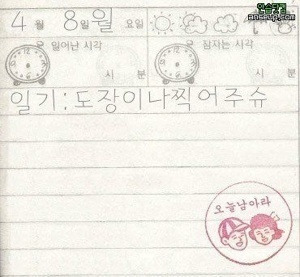 4월 8일월요일
일어난 시각
잠자는 시각
시 분
시 분
일기:도장이나찍어주슈
오늘남아라